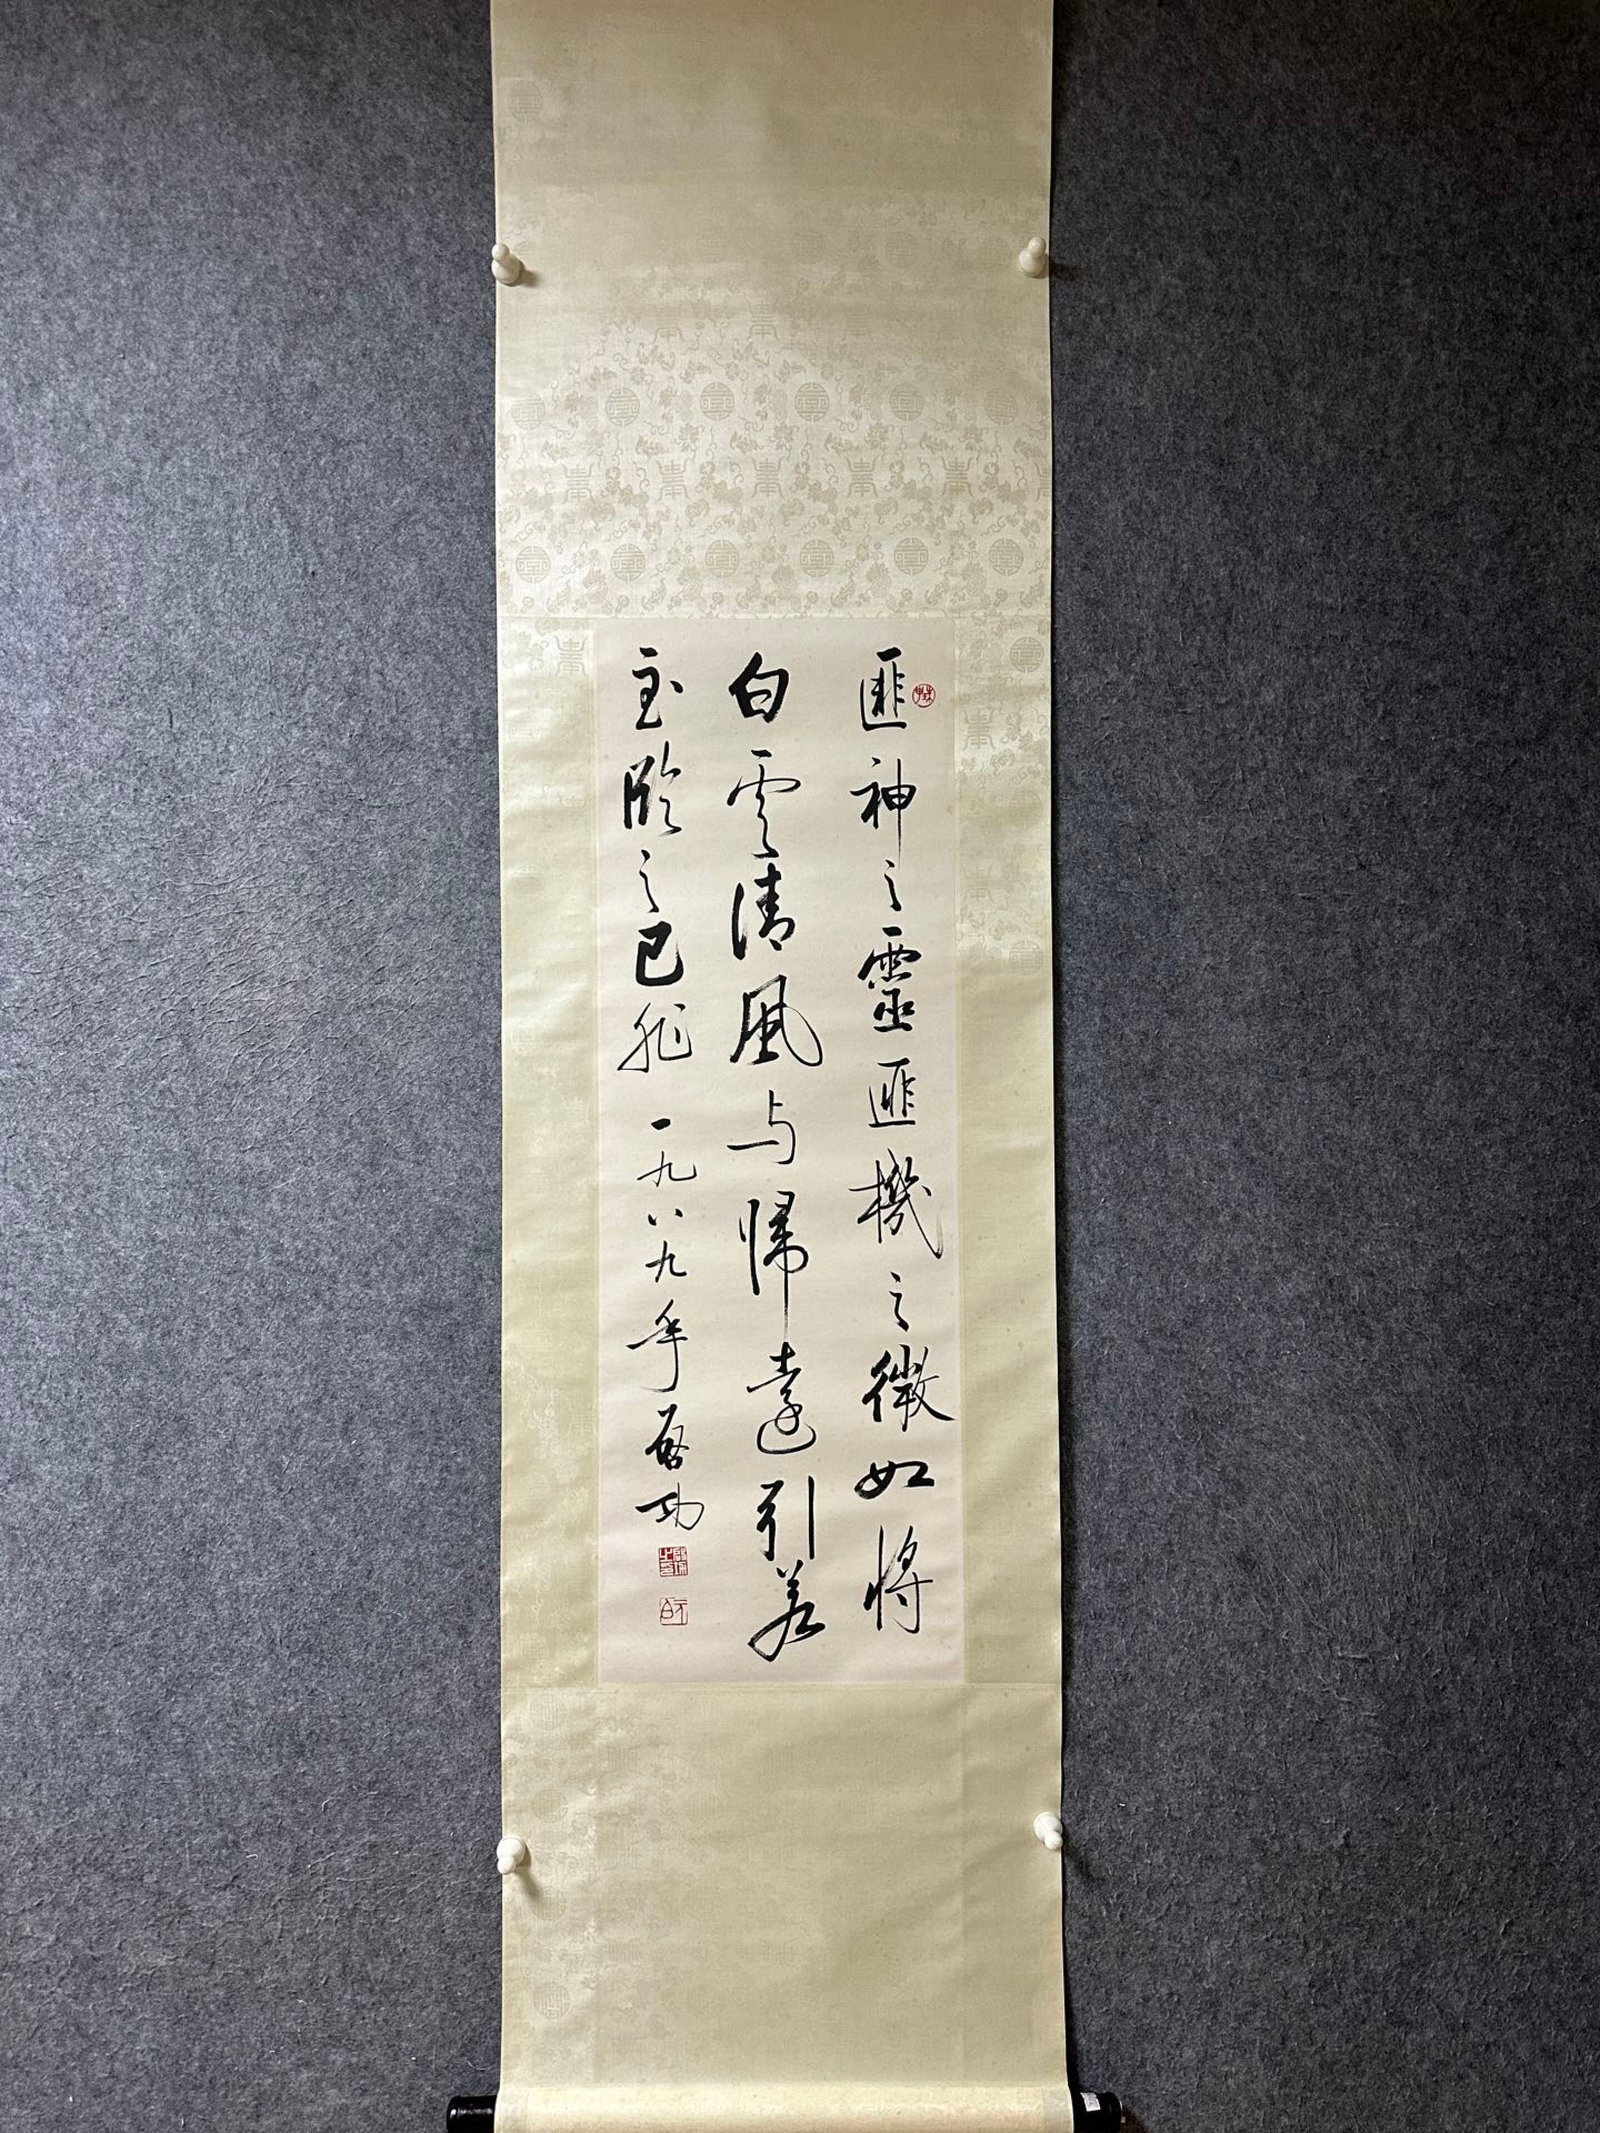 匪神之靈匪機之微如將
白雲清風与歸遠引若
至臨之已非一九八九年啟功